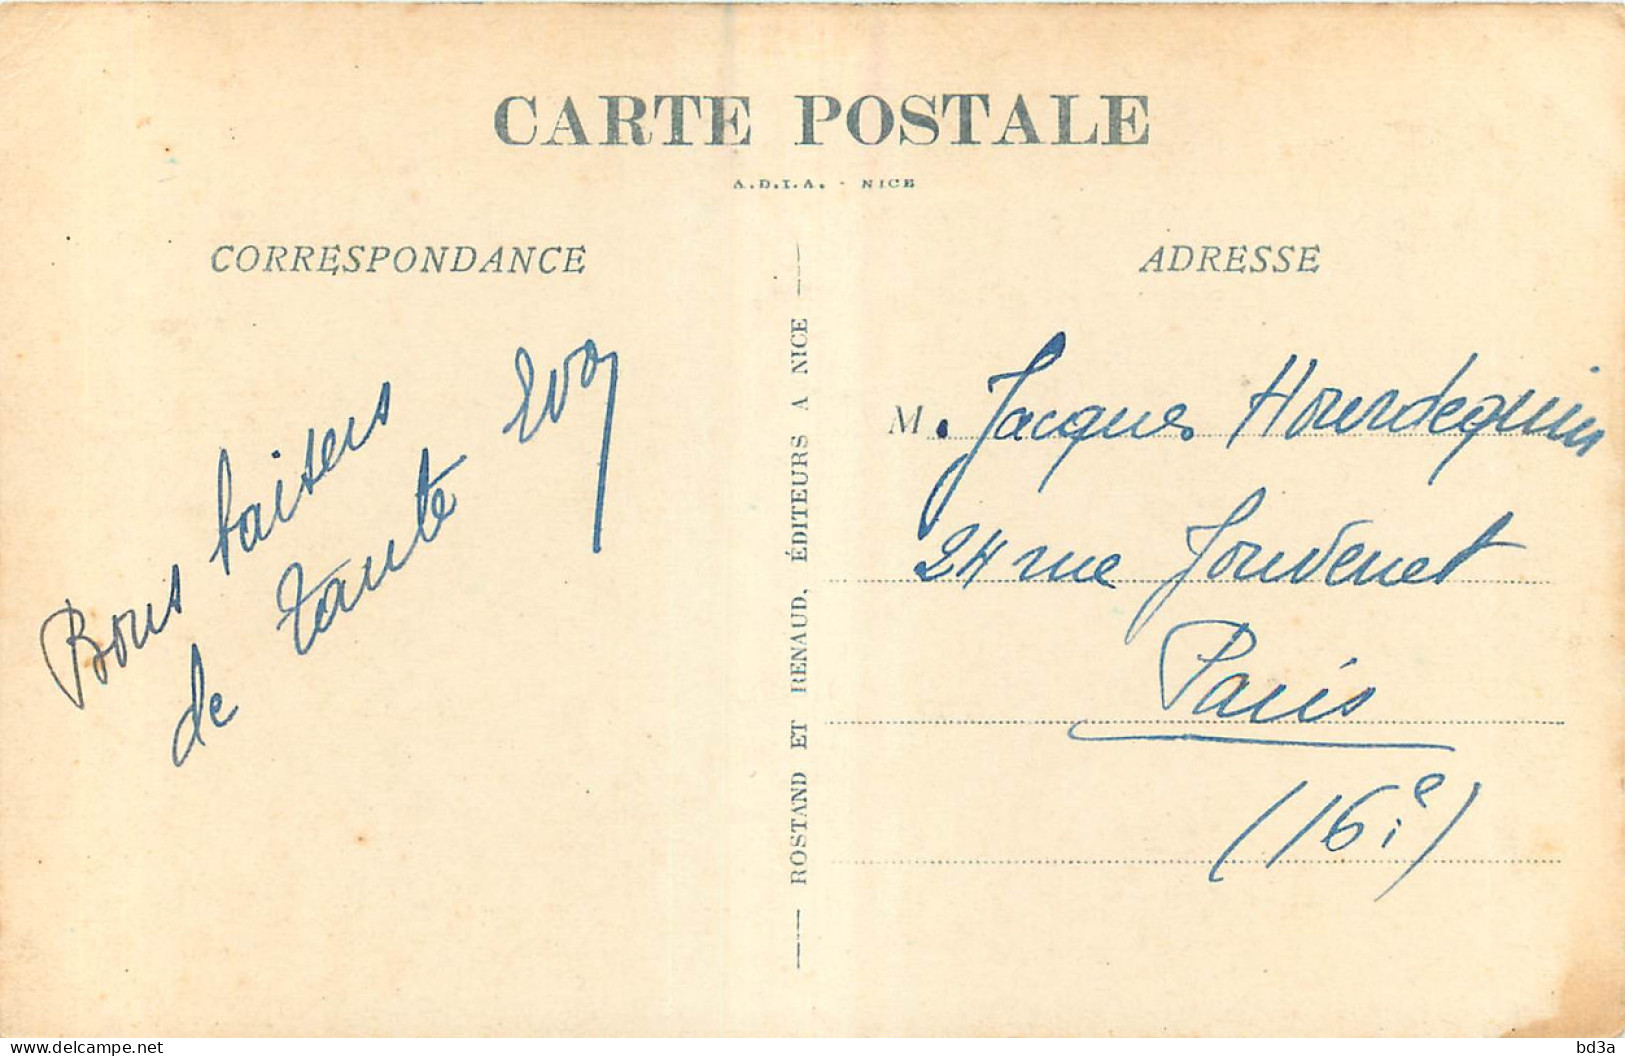 CARTE POSTALE
A.D.I.A. - NICE
CORRESPONDANCE
Bons baisers
de tante Eva
ROSTAND ET RENAUD, ÉDITEURS A NICE
ADRESSE
M. Jacques Hourdequin
24 rue Jouvenet
Paris
(16e)
delcampe.net
bd3a